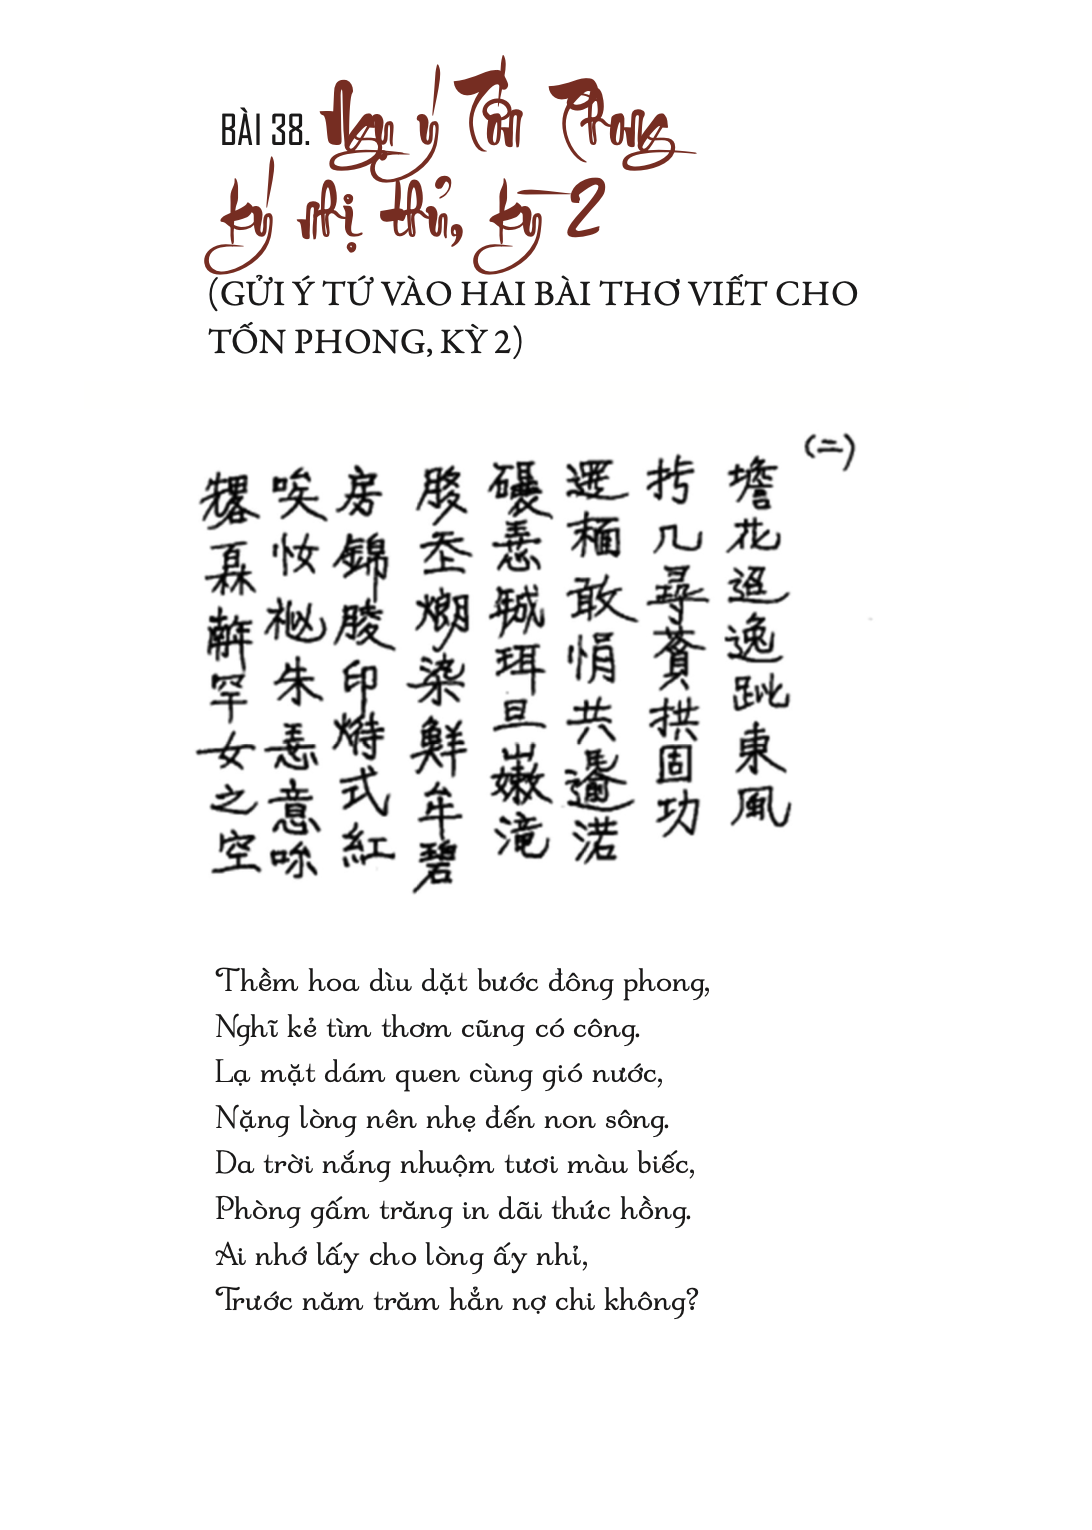 BÀI 38. Ngụ ý Tốn Phong
ký nhị thủ, kỳ 2
(GỬI Ý TỨ VÀO HAI BÀI THƠ VIẾT CHO
TỐN PHONG, KỲ 2)
(二)
花 逸 東風
几尋 拱固功
敢悁共
恙 珥旦嫩滝
染鮮牟碧
房錦 印 式紅
唉 朱恙意
罕女之空
Thềm hoa dìu dặt bước đông phong,
Nghĩ kẻ tìm thơm cũng có công.
Lạ mặt dám quen cùng gió nước,
Nặng lòng nên nhẹ đến non sông.
Da trời nắng nhuộm tươi màu biếc,
Phòng gấm trăng in dãi thức hồng.
Ai nhớ lấy cho lòng ấy nhỉ,
Trước năm trăm hẳn nợ chi không?